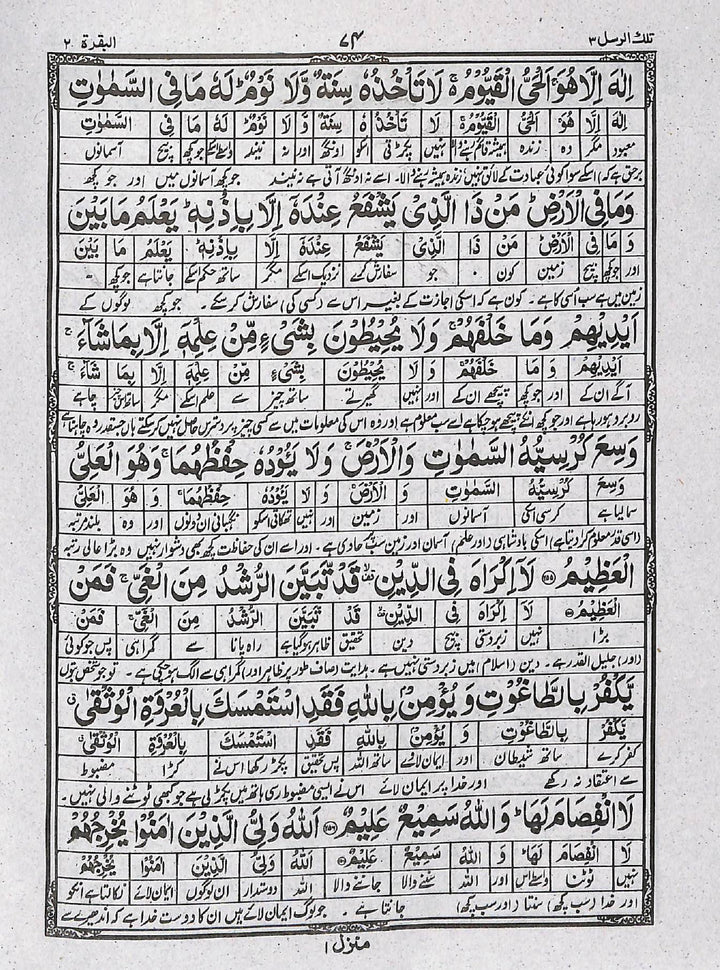 تلك الرسل ۳ ۷۴ البقرة ۲
اِلٰهَ اِلَّا هُوَ ۚ اَلْحَیُّ الْقَیُّوْمُ ۚ لَا تَاْخُذُهٗ سِنَةٌ وَّ لَا نَوْمٌ ؕ لَهٗ مَا فِی السَّمٰوٰتِ
اِلٰهَ اِلَّا هُوَ اَلْحَیُّ الْقَیُّوْمُ ۚ لَا تَاْخُذُ هٗ سِنَةٌ وَّ لَا نَوْمٌ ؕ لَهٗ مَا فِی السَّمٰوٰتِ
معبود مگر وہ زندہ ہمیشہ قائم رہنے والا نہیں پکڑتی اسکو اونگھ اور نہ نیند واسطے اسکے جو کچھ بیچ آسمانوں
برحق ہے کہ) اسکے سوا کوئی عبادت کے لائق نہیں زندہ ہمیشہ رہنے والا۔ اسے نہ اونگھ آتی ہے نہ نیند جو کچھ آسمانوں میں اور جو کچھ
وَ مَا فِی الْاَرْضِ ؕ مَنْ ذَا الَّذِیْ یَشْفَعُ عِنْدَهٗۤ اِلَّا بِاِذْنِهٖ ؕ یَعْلَمُ مَا بَیْنَ
وَ مَا فِی الْاَرْضِ مَنْ ذَا الَّذِیْ یَشْفَعُ عِنْدَهٗ اِلَّا بِاِذْنِهٖ ؕ یَعْلَمُ مَا بَیْنَ
اور جو کچھ بیچ زمین کون ۔ جو سفارش کرے نزدیک اسکے مگر ساتھ حکم اسکے جانتا ہے جو کچھ ۔
زمین میں ہے سب اُسی کا ہے۔ کون ہے کہ اسکی اجازت کے بغیر اس سے (کسی کی) سفارش کر سکے۔ جو کچھ لوگوں کے
اَیْدِیْهِمْ وَ مَا خَلْفَهُمْ ۚ وَ لَا یُحِیْطُوْنَ بِشَیْءٍ مِّنْ عِلْمِهٖۤ اِلَّا بِمَا شَآءَ ۚ
اَیْدِیْهِمْ وَ مَا خَلْفَهُمْ وَ لَا یُحِیْطُوْنَ بِشَیْءٍ مِّنْ عِلْمِهٖ اِلَّا بِمَا شَآءَ ۚ
آگے ان کے اور جو کچھ پیچھے ان کے اور نہیں گھیرتے ساتھ چیز سے علم اسکے مگر ساتھ اس چیز چاہے
روبرو ہو رہا ہے اور جو کچھ انکے پیچھے ہو چکا ہے اسے سب معلوم ہے اور وہ اس کی معلومات میں سے کسی چیز پر دسترس حاصل نہیں کر سکتے ہاں جس قدر وہ چاہتا ہے
وَسِعَ كُرْسِیُّهُ السَّمٰوٰتِ وَ الْاَرْضَ ۚ وَ لَا یَـُٔوْدُهٗ حِفْظُهُمَا ۚ وَ هُوَ الْعَلِیُّ
وَسِعَ كُرْسِیُّهُ السَّمٰوٰتِ وَ الْاَرْضَ وَ لَا یَـُٔوْدُهٗ حِفْظُهُمَا ۚ وَ هُوَ الْعَلِیُّ
سمالیا ہے کرسی اسکی آسمانوں اور زمین اور نہیں تھکاتی اسکو نگہبانی ان دونوں اور وہ بلند مرتبہ
(اسی قدر معلوم کرا دیتا ہے) اسکی بادشاہی (اور علم) آسمان اور زمین سب پر حاوی ہے۔ اور اسے ان کی حفاظت کچھ بھی دشوار نہیں وہ بڑا عالی رتبہ
الْعَظِیْمُ ﴿۲۵۵﴾ لَاۤ اِكْرَاهَ فِی الدِّیْنِ ۙ قَدْ تَّبَیَّنَ الرُّشْدُ مِنَ الْغَیِّ ۚ فَمَنْ
الْعَظِیْمُ لَا اِكْرَاهَ فِی الدِّیْنِ قَدْ تَّبَیَّنَ الرُّشْدُ مِنَ الْغَیِّ ۚ فَمَنْ
بڑا نہیں زبردستی بیچ دین تحقیق ظاہر ہو گیا ہے راہ پانا سے گمراہی پس جو کوئی
(اور) جلیل القدر ہے۔ دین (اسلام) میں زبردستی نہیں ہے۔ ہدایت (صاف طور پر ظاہر اور) گمراہی سے الگ ہو چکی ہے۔ تو جو شخص بتوں
یَّكْفُرْ بِالطَّاغُوْتِ وَ یُؤْمِنْۢ بِاللّٰهِ فَقَدِ اسْتَمْسَكَ بِالْعُرْوَةِ الْوُثْقٰی ۗ
یَّكْفُرْ بِالطَّاغُوْتِ وَ یُؤْمِنْۢ بِاللّٰهِ فَقَدِ اسْتَمْسَكَ بِالْعُرْوَةِ الْوُثْقٰی ۗ
کفر کرے ساتھ شیطان اور ایمان لاوے ساتھ اللہ پس تحقیق پکڑ رکھا اس نے کڑا مضبوط
سے اعتقاد نہ رکھے اور خدا پر ایمان لائے اس نے ایسی مضبوط رسی ہاتھ میں پکڑ لی ہے جو کبھی ٹوٹنے والی نہیں۔
لَا انْفِصَامَ لَهَا ؕ وَ اللّٰهُ سَمِیْعٌ عَلِیْمٌ ﴿۲۵۶﴾ اَللّٰهُ وَلِیُّ الَّذِیْنَ اٰمَنُوْا یُخْرِجُهُمْ
لَا انْفِصَامَ لَهَا ؕ وَ اللّٰهُ سَمِیْعٌ عَلِیْمٌ اَللّٰهُ وَلِیُّ الَّذِیْنَ اٰمَنُوْا یُخْرِجُهُمْ
نہیں ٹوٹنا واسطے اس اور اللہ سننے والا جاننے والا اللہ دوستدار ان لوگوں ایمان لائے نکالتا ہے انکو
اور خدا (سب کچھ) سنتا (اور سب کچھ) جانتا ہے۔ جو لوگ ایمان لائے ہیں ان کا دوست خدا ہے کہ اندھیرے سے
منزل ۱